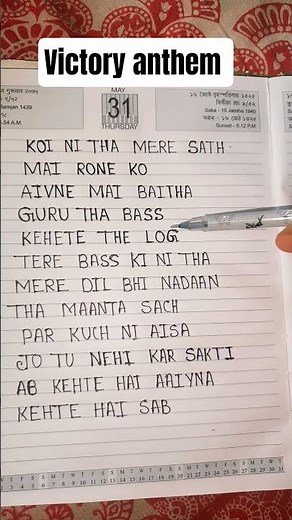 Victory anthem
MAY
31
THURSDAY
KOI NI THA MERE SATH
MAI RONE KO
AIVNE MAI BAITHA
GURU THA BASS
KEHETE THE LOG
TERE BASS KI NI THA
MERE DIL BHI NADAAN
THA MAANTA SACH
PAR KUCH NI AISA
JO TU NEHI KAR SAKTI
AB KEHTE HAI AAIYNA
KEHTE HAI SAB